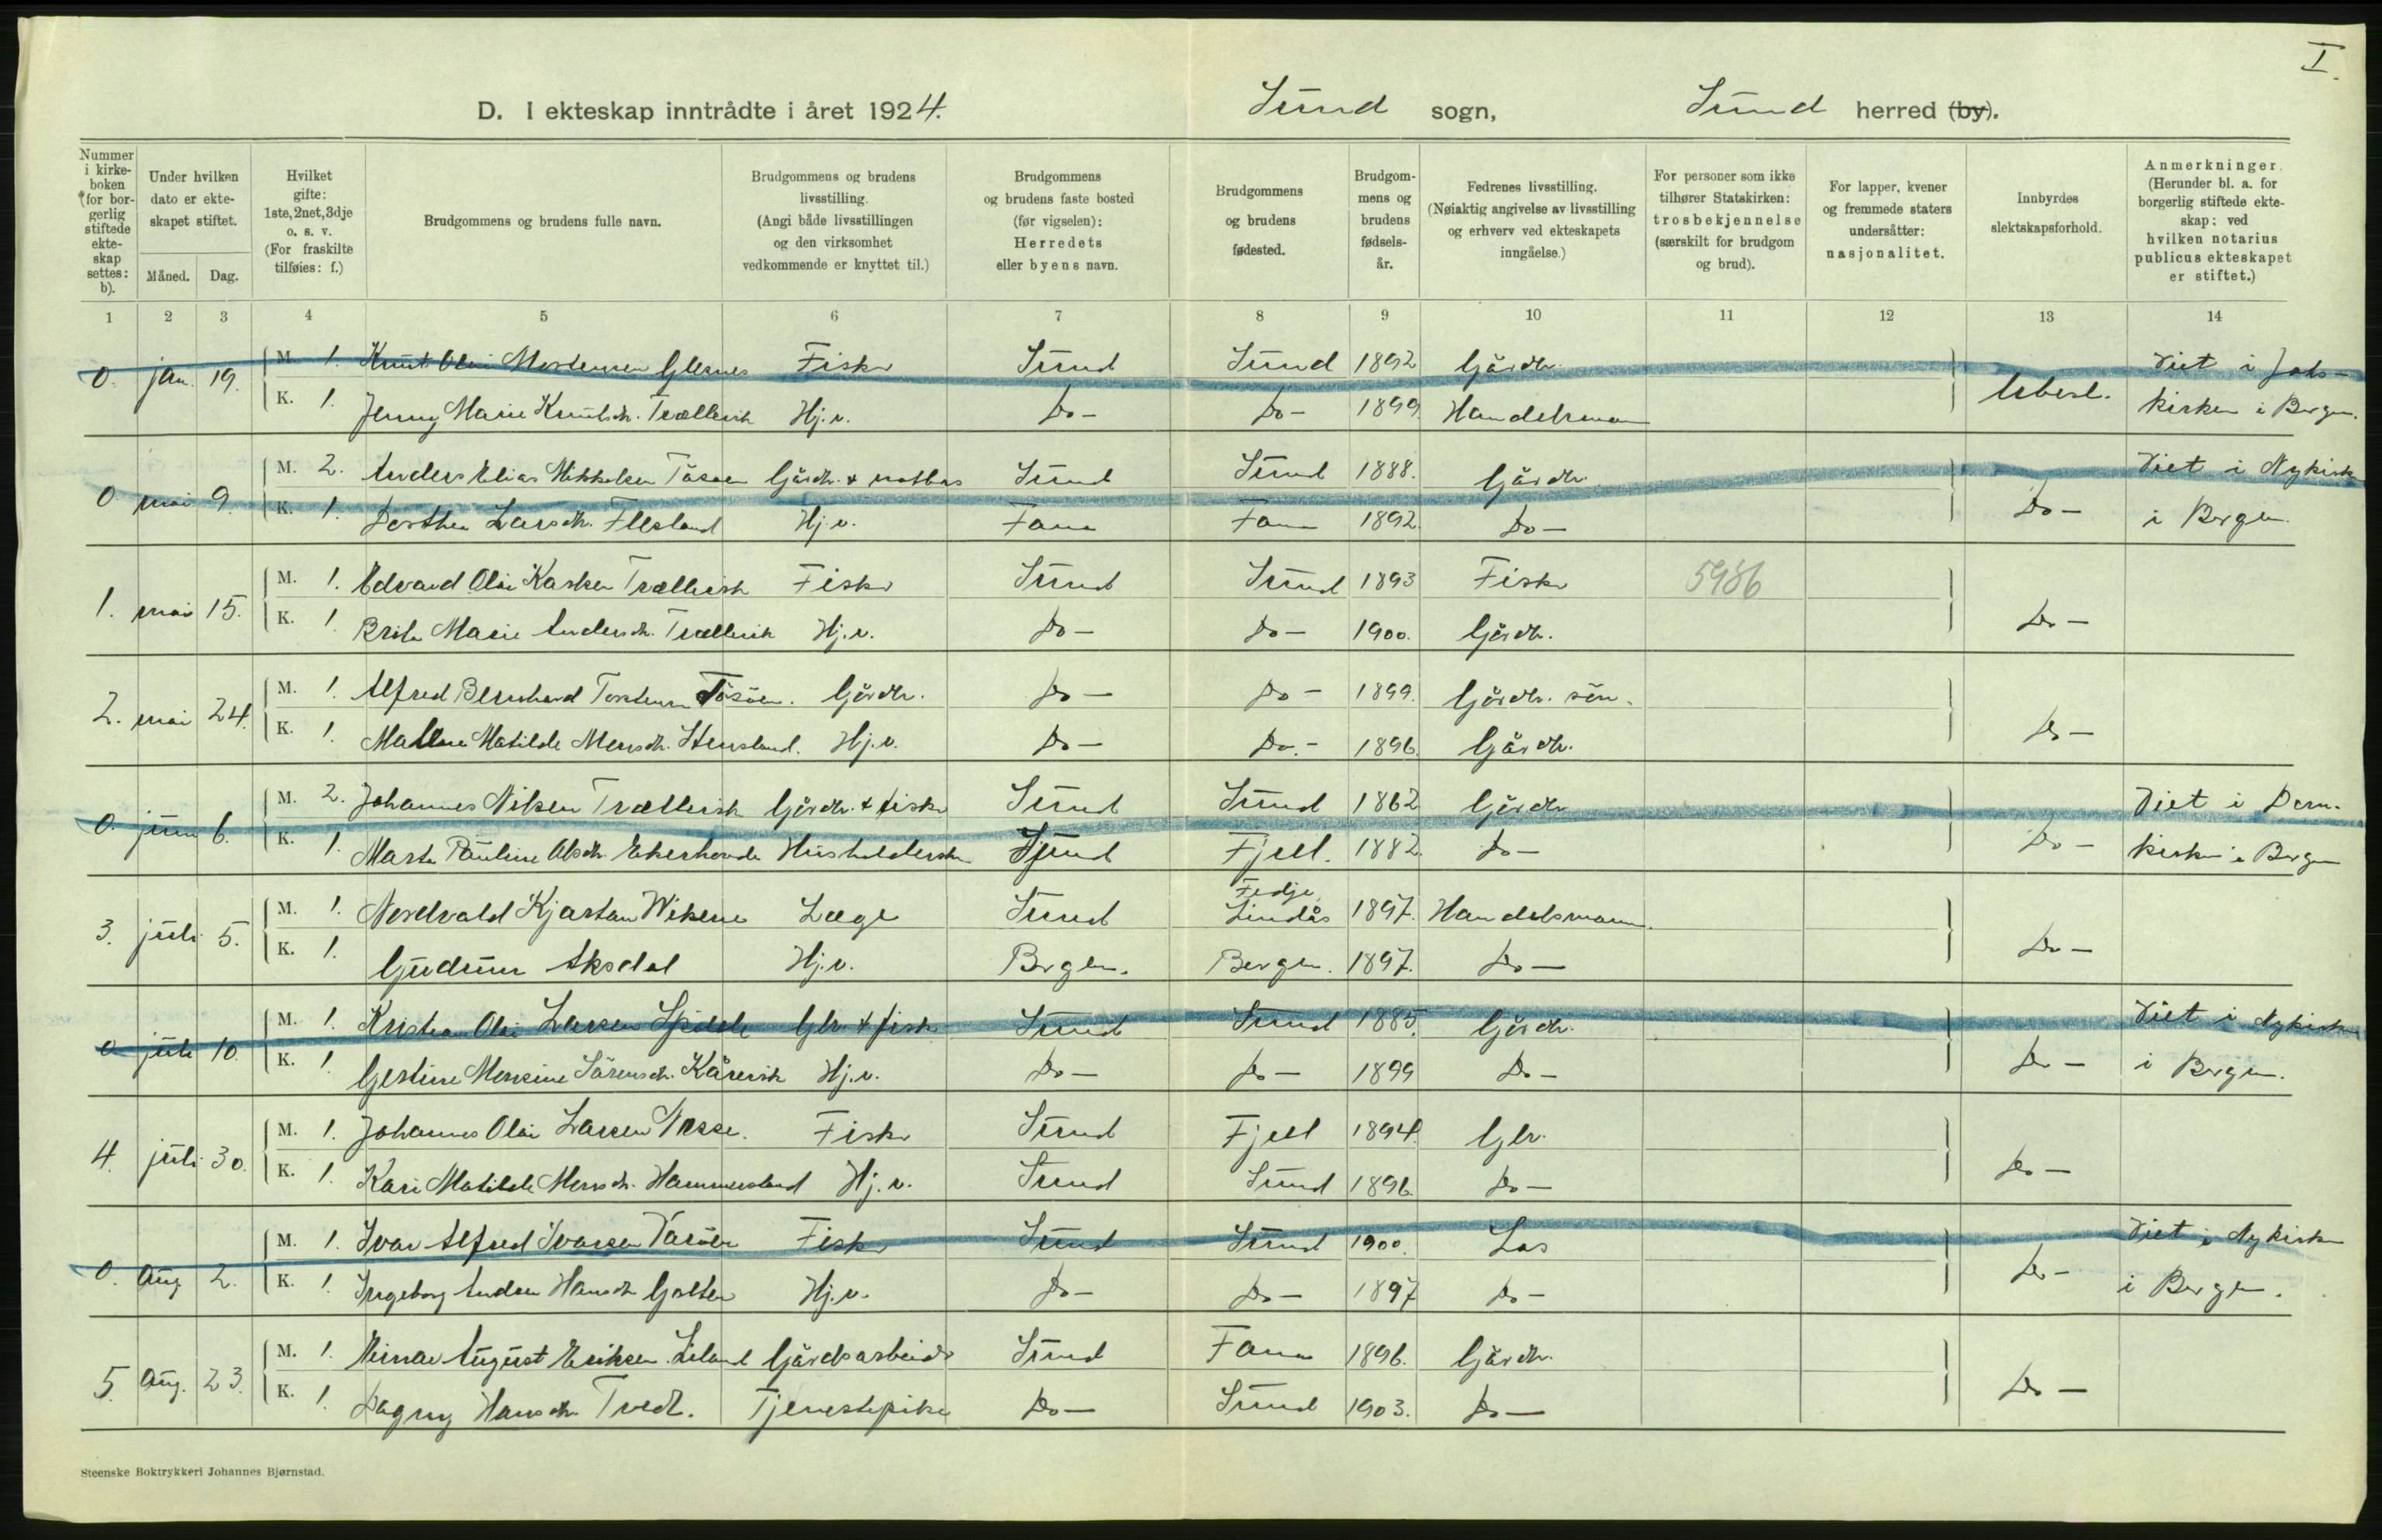 I.
D. I ekteskap inntrådte i året 1924. Sund sogn, Sund herred (by).
Nummer i kirkeboken (for borgerlig stiftede ekteskap settes: b).
Under hvilken dato er ekteskapet stiftet.
Måned. Dag.
Hvilket gifte: 1ste, 2net, 3dje o. s. v. (For fraskilte tilføies: f.)
Brudgommens og brudens fulle navn.
Brudgommens og brudens livsstilling. (Angi både livsstillingen og den virksomhet vedkommende er knyttet til.)
Brudgommens og brudens faste bosted (før vigselen): Herredets eller byens navn.
Brudgommens og brudens fødested.
Brudgommens og brudens fødselsår.
Fedrenes livsstilling. (Nøiaktig angivelse av livsstilling og erhverv ved ekteskapets inngåelse.)
For personer som ikke tilhører Statskirken: trosbekjennelse (særskilt for brudgom og brud).
For lapper, kvener og fremmede staters undersåtter: nasjonalitet.
Innbyrdes slektskapsforhold.
Anmerkninger. (Herunder bl. a. for borgerlig stiftede ekteskap: ved hvilken notarius publicus ekteskapet er stiftet.)
1 2 3 4 5 6 7 8 9 10 11 12 13 14
0. jan. 19. M. 1. Knut Olai Mortensen Glesnes Fisker Sund Sund 1892 Gårdbr. Viet i Johs-
K. 1. Jenny Marie Knutsdr. Trællevik Hj.v. Do- Do- 1899. Handelsmann Ubesl. kirken i Bergen.
0 mai 9. M. 2. Anders Elias Mikkelsen Tøsøen Gårdbr. & notbas Sund Sund 1888. Gårdbr. Viet i Nykirk
K. 1. Dorthea Larsdtr. Flesland Hj.v. Fana Fana 1892. Do- Do- i Bergen.
1. mai 15. M. 1. Edvard Olai Karlsen Trællevik Fisker Sund Sund 1893 Fisker 5986
K. 1. Brita Marie Andersdr. Trællevik Hj.v. Do- Do- 1900. Gårdbr. Do-
2. mai 24. M. 1. Alfred Bernhard Tøsøen. Gårdbr. Do- Do- 1899. Gårdbr. søn.
K. 1. Matilde Monsdr. Stensland. Hj.v. Do- Do.- 1896. Gårdbr. Do-
0. juni 6. M. 2. Johannes Nilsen Trællevik Gårdbr. & fisker Sund Sund 1862 Gårdbr. Viet i Dom-
K. 1. Marta Pauline Olsdr. Ekerhovde Husholderske Sund Fjell. 1882. Do- Do- kirken i Bergen
3. juli 5. M. 1. Nordvald Kjartan Wikene Læge Sund Fedje, Lindås 1897. Handelsmann.
K. 1. Gudrun Aksdal Hj.v. Bergen. Bergen. 1897. Do- Do-
0 juli 10. M. 1. Kristian Olai Larsen Spilde Gbr. & fisk Sund Sund 1885. Gårdbr. Viet i Nykirken
K. 1. Gestine Monsine Sørensdr. Kårevik Hj.v. Do- Do- 1899 Do- Do- i Bergen.
4. juli 30. M. 1. Johannes Olai Larsen Nesse. Fisker Sund Fjell 1894. Gbr.
K. 1. Kari Matilde Monsdr. Hammersland Hj.v. Sund Sund 1896. Do- Do-
0. Aug. 2. M. 1. Ivar Alfred Ivarsen Vasøen Fisker Sund Sund 1900. Los Viet i Nykirken
K. 1. Ingeborg Andrea Hansdr. Golten Hj.v. Do- Do- 1897 Do- Do- i Bergen.
5. Aug. 23. M. 1. Einar August Eriksen Liland Gårdsarbeider Sund Fana 1896. Gårdbr.
K. 1. Dagny Hansdr. Tvedt. Tjenestepike Do- Sund 1903. Do- Do-
Steenske Boktrykkeri Johannes Bjørnstad.